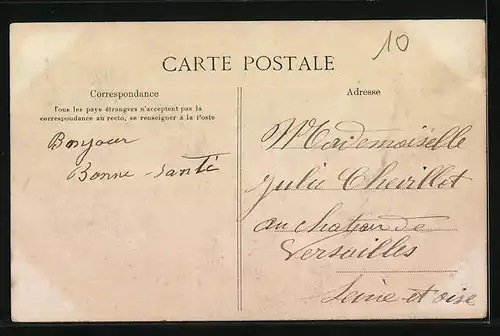 10
CARTE POSTALE
Correspondance
Tous les pays étrangers n'acceptent pas la
correspondance au recto, se renseigner à la Poste
Bonjour
Bonne-santé
Adresse
Mademoiselle
Julie Chevillot
au chateau de
Versailles
Seine-et oise